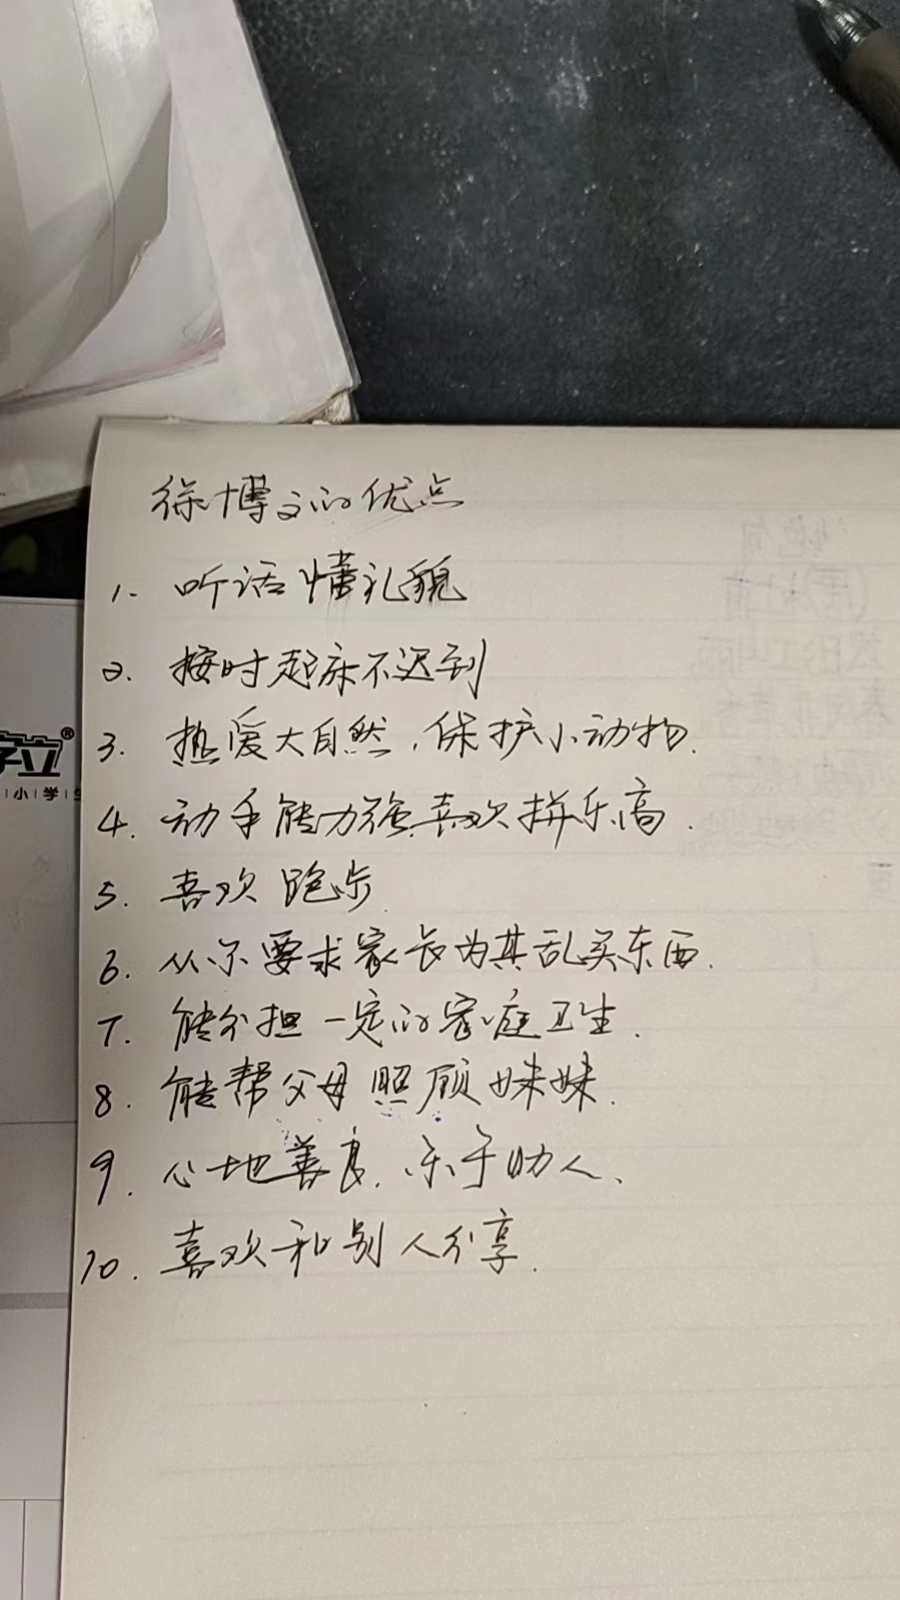 徐博文的优点
1. 听话懂礼貌
2. 按时起床不迟到
3. 热爱大自然,保护小动物.
4. 动手能力强.喜欢拼乐高.
5. 喜欢跑步
6. 从不要求家长为其乱买东西.
7. 能分担一定的家庭卫生.
8. 能帮父母照顾妹妹.
9. 心地善良.乐于助人、
10. 喜欢和别人分享.
立®
小学